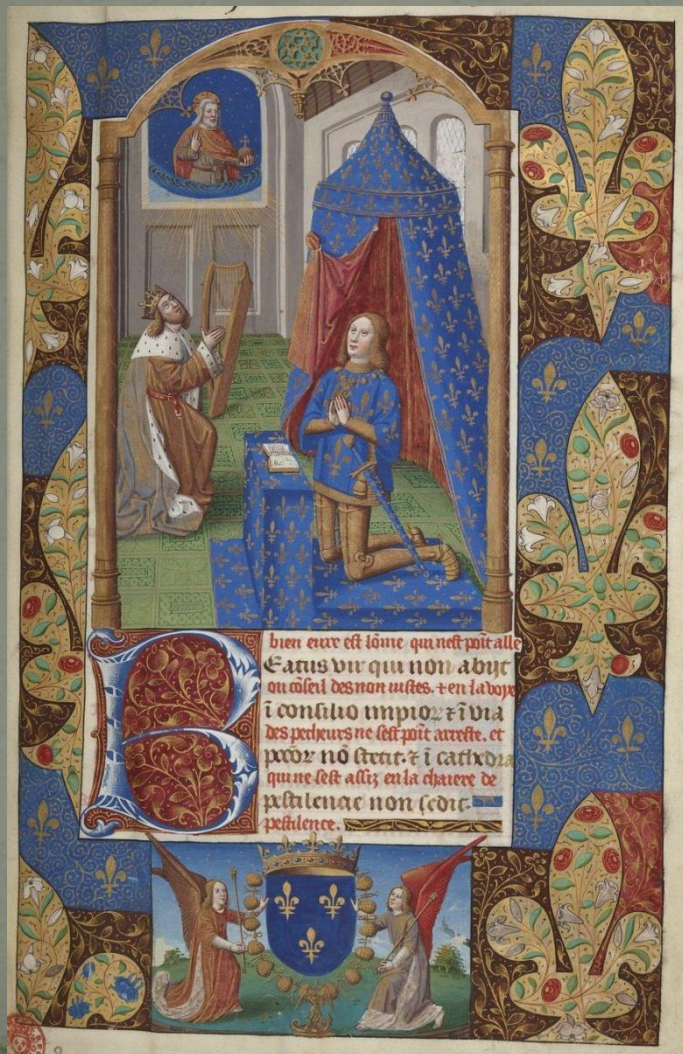 bien eure est lōme qui nest poīt alle
Beatus vir qui non abijt
ou cōseil des non iustes. ⁊ en la voye
ī consilio impioꝝ ⁊ ī via
des pecheurs ne sest poīt arreste. et
pctōꝝ nō stetit. ⁊ ī cathedra
qui ne sest assiz en la chaiere de
pestilencie non sedit.
pestilence.